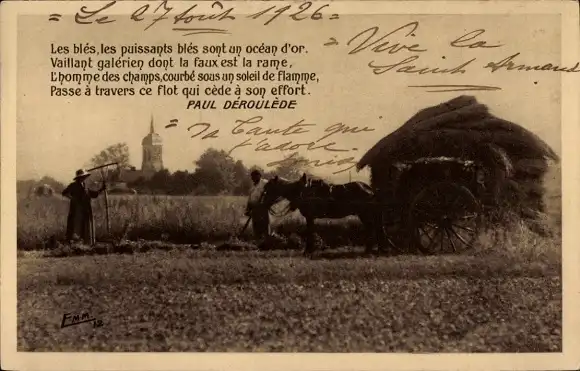 = Le 27 Août 1926 =
Les blés, les puissants blés sont un océan d'or.
Vaillant galérien dont la faux est la rame,
L'homme des champs, courbé sous un soleil de flamme,
Passe à travers ce flot qui cède à son effort.
PAUL DÉROULÈDE
= Vive la
Saint Armand =
= Ta Tante qui
t'adore
EMM